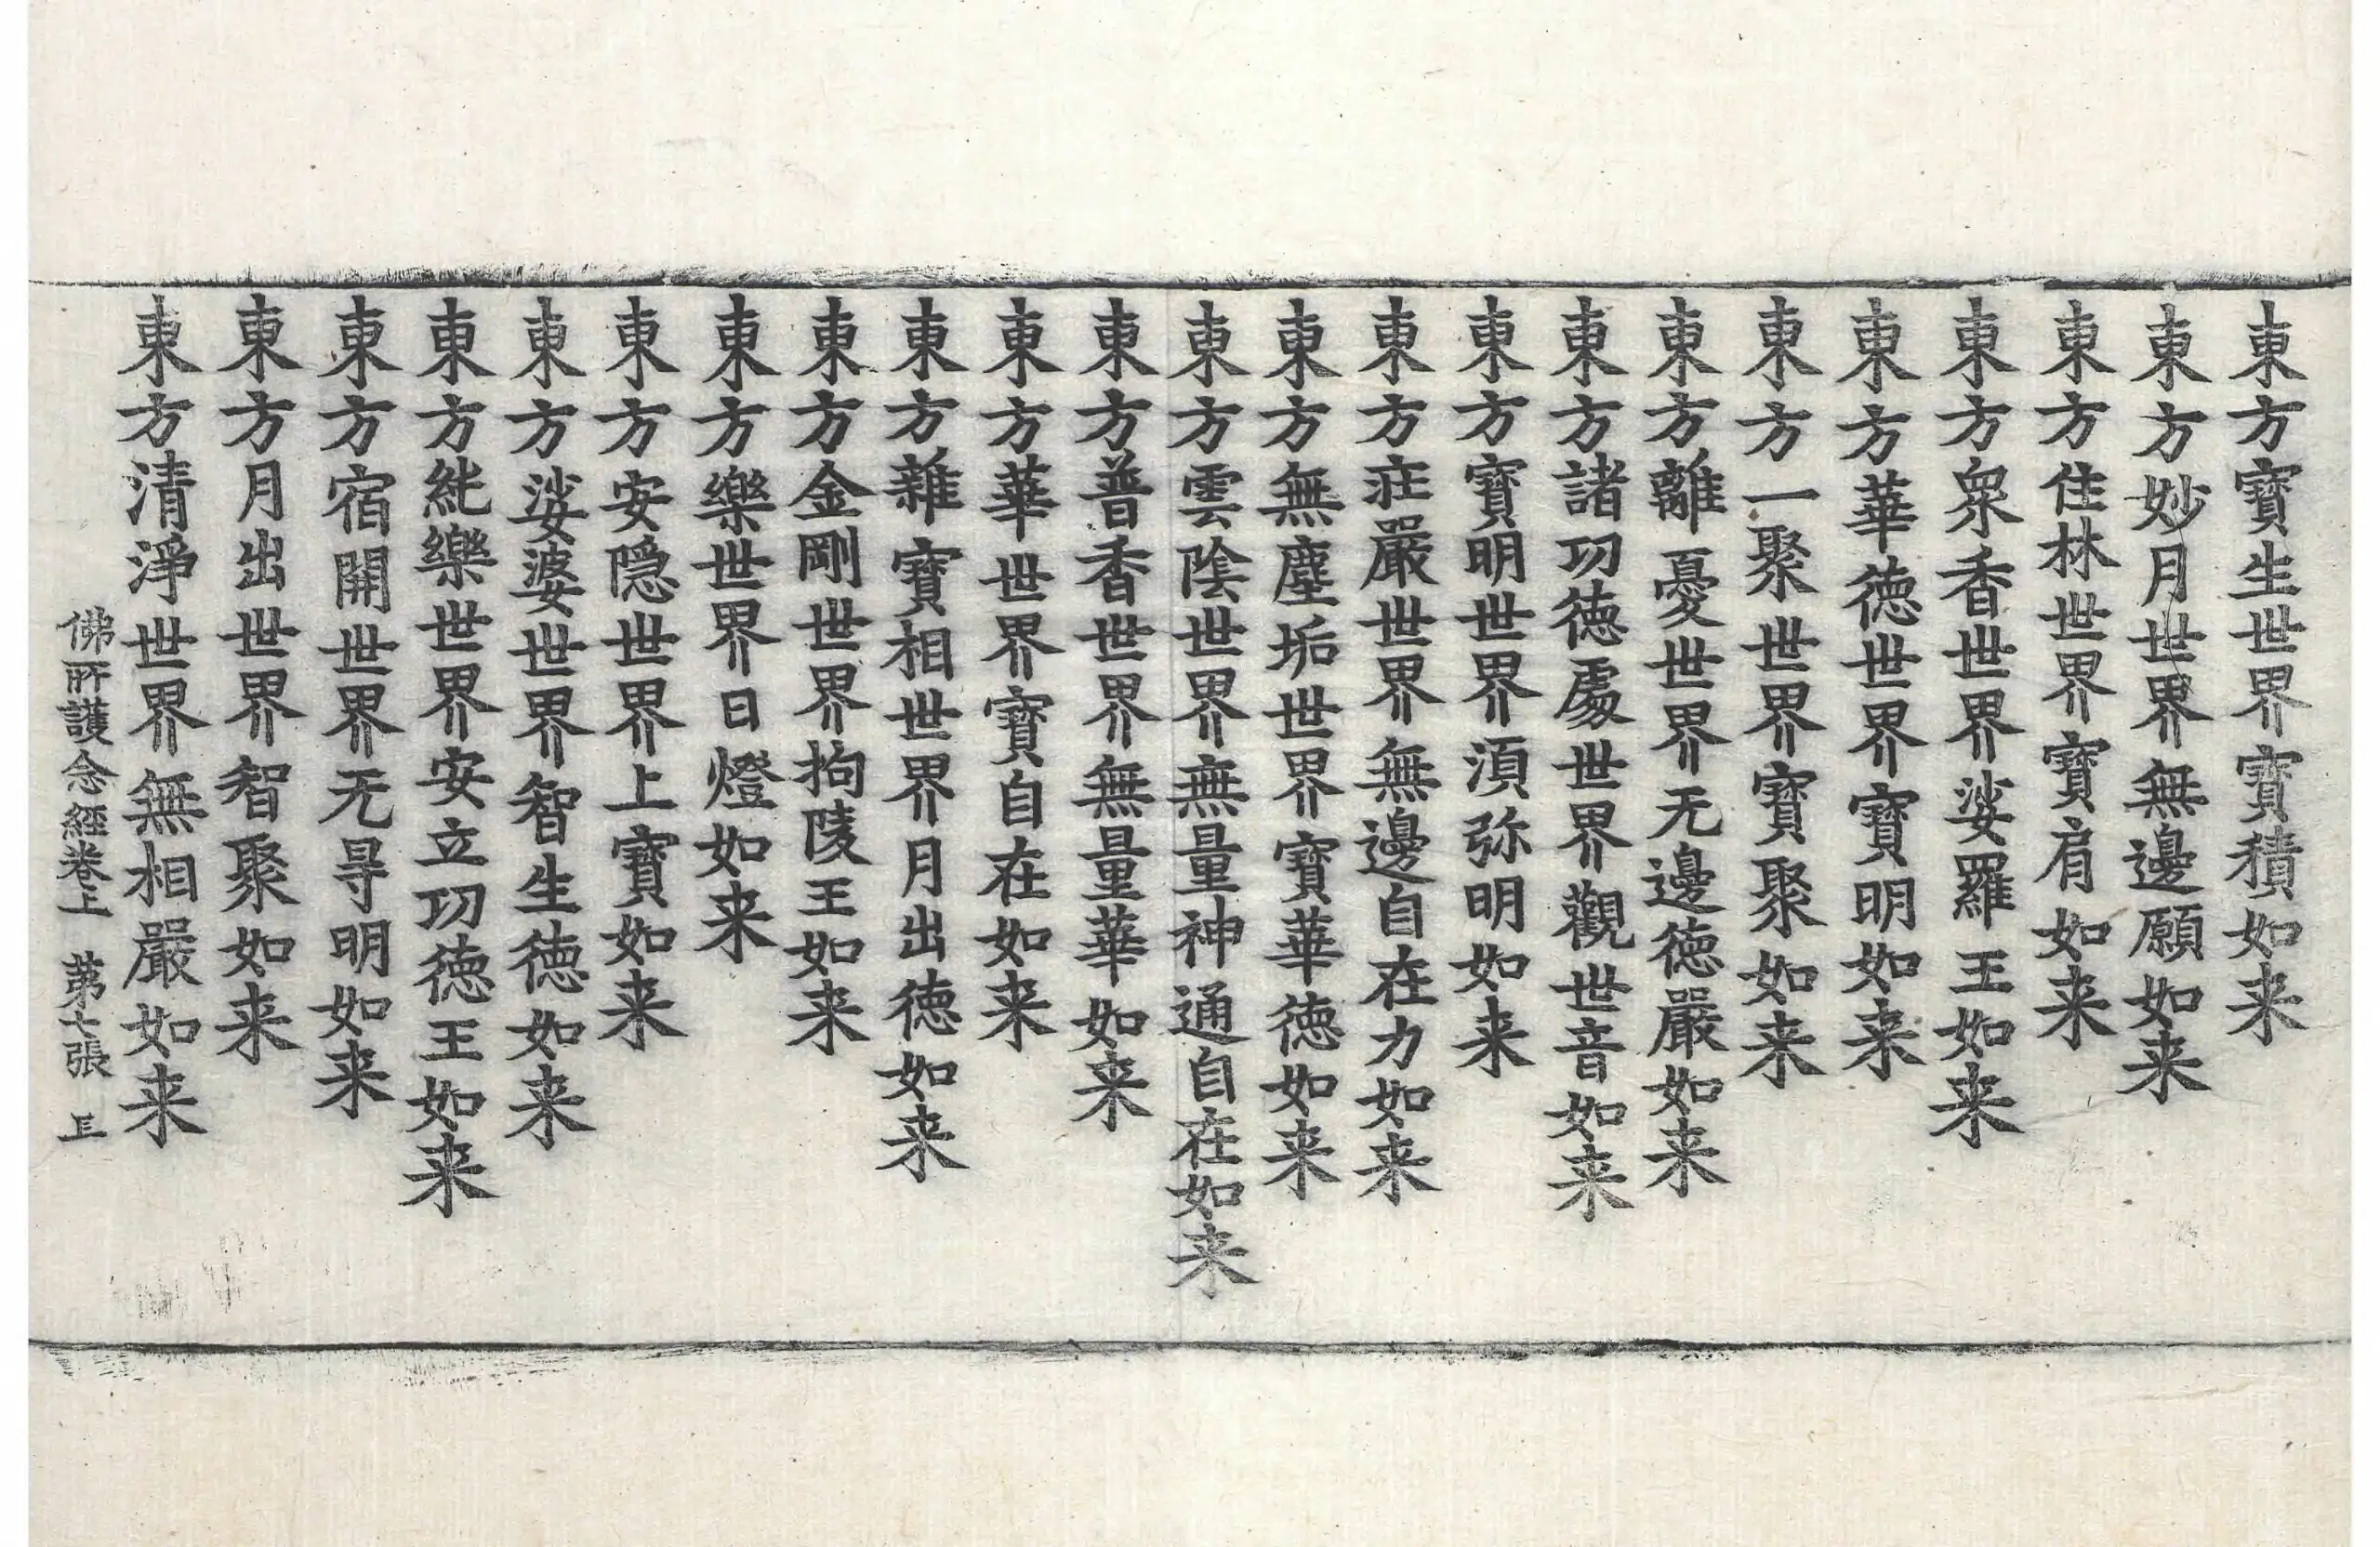 東方寶生世界寶積如来
東方妙月世界無邊願如来
東方住林世界寶肩如来
東方衆香世界娑羅王如来
東方華德世界寶明如来
東方一聚世界寶聚如来
東方離憂世界无邊德嚴如来
東方諸功德處世界觀世音如来
東方寶明世界湏弥明如来
東方莊嚴世界無邊自在力如来
東方無塵垢世界寶華德如来
東方雲陰世界無量神通自在如来
東方普香世界無量華如来
東方華世界寶自在如来
東方雜寶相世界月出德如来
東方金剛世界拘陵王如来
東方樂世界日燈如来
東方安隱世界上寶如来
東方娑婆世界智生德如来
東方純樂世界安立功德王如来
東方宿開世界无㝵明如来
東方月出世界智聚如来
東方清淨世界無相嚴如来
佛所護念經卷上 第七張